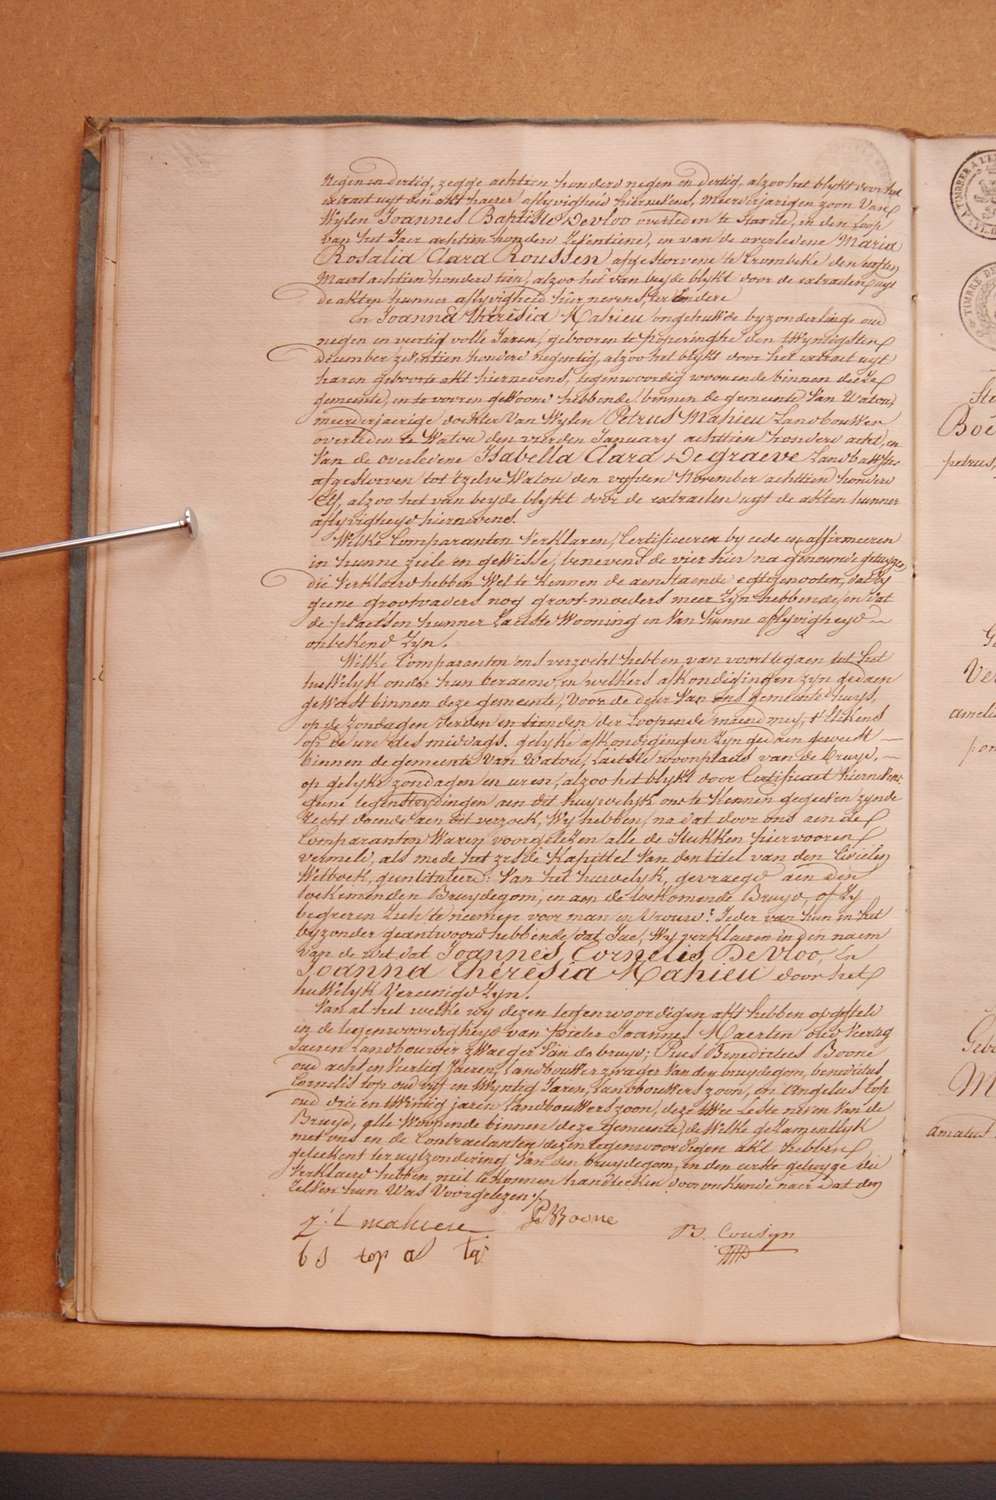 negen en dertig, zegge achtien honderd negen en dertig, alzoo het blykt voor het
extract uyt den akt haerer aflyvigheid hiernevens, meerderjarigen zoon Van
Wylen Joannes Baptiste Devloo overleden te Stavele, in den loop
van het Jaer achtien honderd, en van de overledene Maria
Rosalia Clara Roussen afgestorvene te Crombeke den
Maert achtien honderd tien, alzoo het van beyde blykt door de extracten uyt
de akten hunner aflyvigheid hiernevens, ter eendere
En Joanna Theresia Mahieu ongehuwde byzonderlinge oud
negen en veertig volle Jaren, gebooren te Poperinghe den twyntigsten
December zeventien honderd negentig, alzoo het blykt door het extract uyt
haren geboorte akt hiernevens, tegenwoordig woonende binnen deeze
gemeente, en te vorren gewoond hebbende binnen de gemeente Van Watou,
meerderjarige dochter Van Wylen Petrus Mahieu Landbouwer
overleden te Watou den vierden January achttien honderd acht, en
Van de overledene Isabella Clara Degraeve Landbouwster
afgestorven tot tzelve Watou den vyfden November achttien honderd
Elf, alzoo het van beyde blykt door de extracten uyt de akten hunner
aflyvigheyd hiernevens.
Welke Comparanten Verklaren, Certificeren by eede en affirmeren
in hunne ziele en gewisse, benevens de vier hier na genoemde getuygen
die Verklaerd hebben Wel te kennen de aenstaende egtgenooten, dat zy
geene grootvaders nog groot-moeders meer zyn hebbende, en dat
de plaetsen hunner Laetste Wooning en Van hunne aflyvigheyd
onbekend Zyn.
Welke Comparanten ons verzocht hebben van voort te gaen tot het
huwelyk onder hun beraemd, en welkers afkondigingen zyn gedaen
geweest binnen deze gemeente, Voor de deur Van ons gemeente huys,
op de zondagen derden en tienden der loopende maend mey, t'elkens
op de ure des middags. gelyke afkondigingen Zyn gedaen geweest
binnen de gemeente Van Watou, Laetste woonplaets van de Bruyd,
op gelyke zondagen en uren, alzoo het blykt door Certificaet hiernevens
geene tegenstrydingen aen dit huywelyk ons te kennen gegeeven zynde
Recht doende aen dit verzoek, Wy hebben, na dat door ons aen de
Comparanten Waren voorgelezen alle de Stukken hiervooren
vermeld, als mede het zesde Kapittel Van den titel van den Civielen
Wetboek, geintituleerd: Van het huwelyk, gevraegd aen den
toekomenden Bruydegom, en aen de toekomende Bruyd, of Zy
begeeren Zich te neemen voor man en Vrouw? Ieder van hun in het
byzonder geantwoord hebbende, dat Jae, Wy verklaeren in den naem
van de Wet dat Joannes Cornelis DeVloo, En
Joanna Theresia Mahieu door het
huwelyk Vereenigd Zyn.
Van al het welke wy dezen tegenwoordigen akt hebben opgesteld
in de tegenwoordigheyd van Joannes Maerten oud Veertig
Jaeren Landbouwer zwaeger Van de bruyd; Pius Benedictus Boone
oud acht en Veertig Jaeren, Landbouwer zwager Van den bruydegom, benedictus
Cornelis top oud vyf en twyntig Jaren, Landbouwers zoon, en Angelus top
oud drie en twintig jaren Landbouwers zoon, deze twee Leste neven Van de
Bruyd, alle Woonende binnen deze gemeente, de Welke gezamentlyk
met ons en de Contractanten dezen tegenwoordigen akt hebben
geteekent ter uytzondering Van den bruydegom, en den eersten getuyge die
Verklaerd hebben niet te konnen handteeken door onkunde naer dat den
Zelven hun Was Voorgelezen
J: t mahieu
P B Boone
B. Cousyn
b s top a top
Boe
petrus
Ve
amelie
Gebo
M
amatus